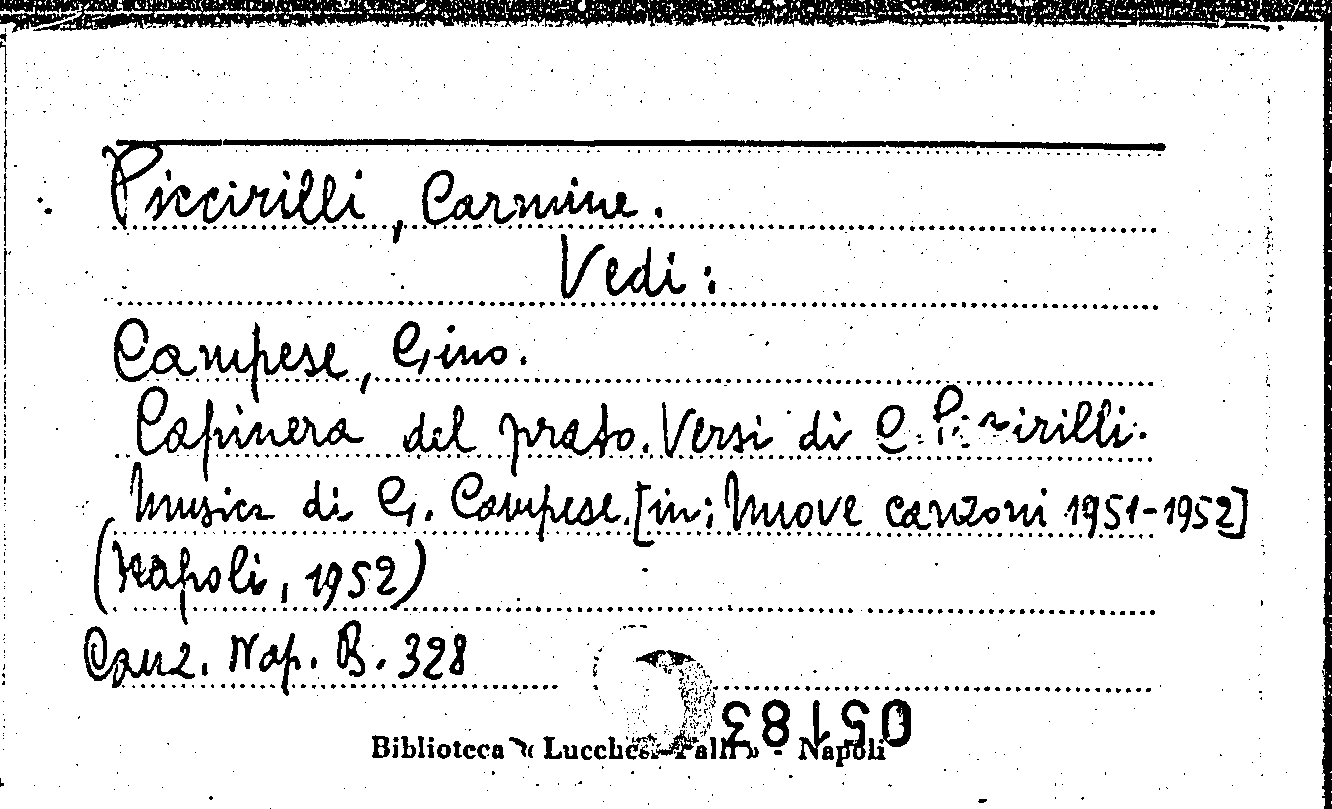 Piccirilli, Carmine.
Vedi:
Campese, Gino.
Capinera del prato. Versi di C. Piccirilli.
Musica di G. Campese. [in: Nuove canzoni 1951-1952]
(Napoli, 1952)
Canz. Nap. B. 328
05183
Biblioteca « Lucchesi-Palli » - Napoli